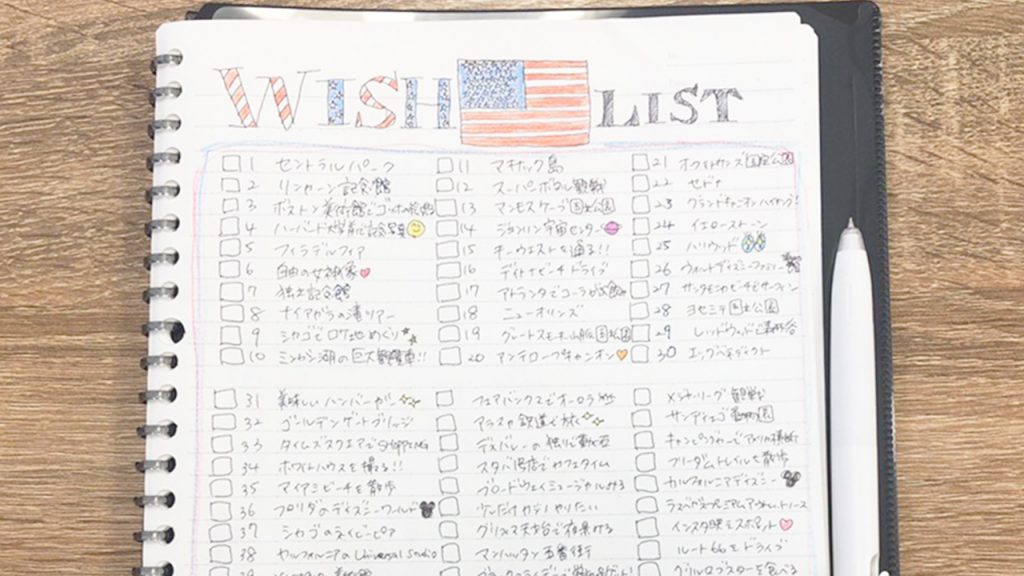 WISH LIST
1 セントラルパーク
2 リンカーン記念館
3 ボストン美術館でゴッホの絵画
4 ハーバード大学前で記念写真
5 フィラデルフィア
6 自由の女神像
7 独立記念館
8 ナイアガラの滝ツアー
9 シカゴでロケ地めぐり
10 ミシガン湖の巨大観覧車!!
11 マキナック島
12 スーパーボウル観戦
13 マンモスケーブ国立公園
14 ジョンソン宇宙センター
15 キーウエストを通る!!
16 デイトナビーチドライブ
17 アトランタでコーラが飲み
18 ニューオリンズ
19 グレートスモーキー山脈国立公園
20 アンテロープキャニオン
21 ホワイトサンズ国立公園
22 セドナ
23 グランドキャニオンハイキング!
24 イエローストーン
25 ハリウッド
26 ウォルトディズニーファミリー
27 サンタモニカビーチでサーフィン
28 ヨセミテ国立公園
29 レッドウッドで森林浴
30 エッグベネディクト
31 美味しいハンバーガー
32 ゴールデンゲートブリッジ
33 タイムズスクエアでSHOPPING
34 ホワイトハウスを撮る!!
35 マイアミビーチを散歩
36 フロリダのディズニーワールド
37 シカゴのネイビーピア
38 カルフォルニアのUniversal Studio
39
フェアバンクスでオーロラ
アラスカ鉄道で旅
デスバレーの
スタバ1号店でカフェタイム
ブロードウェイミュージカルみる
やりたい
グリフィス天文台で夜景みる
マンハッタン五番街
メジャーリーグ観戦
サンディエゴ動物園
キャンピングカーでアメリカ横断
フリーダムトレイルを散歩
カルフォルニアディズニー
ラスベガスプレミアムアウトレットノース
インスタ映えスポット
ルート66をドライブ
グリルロブスターを食べる